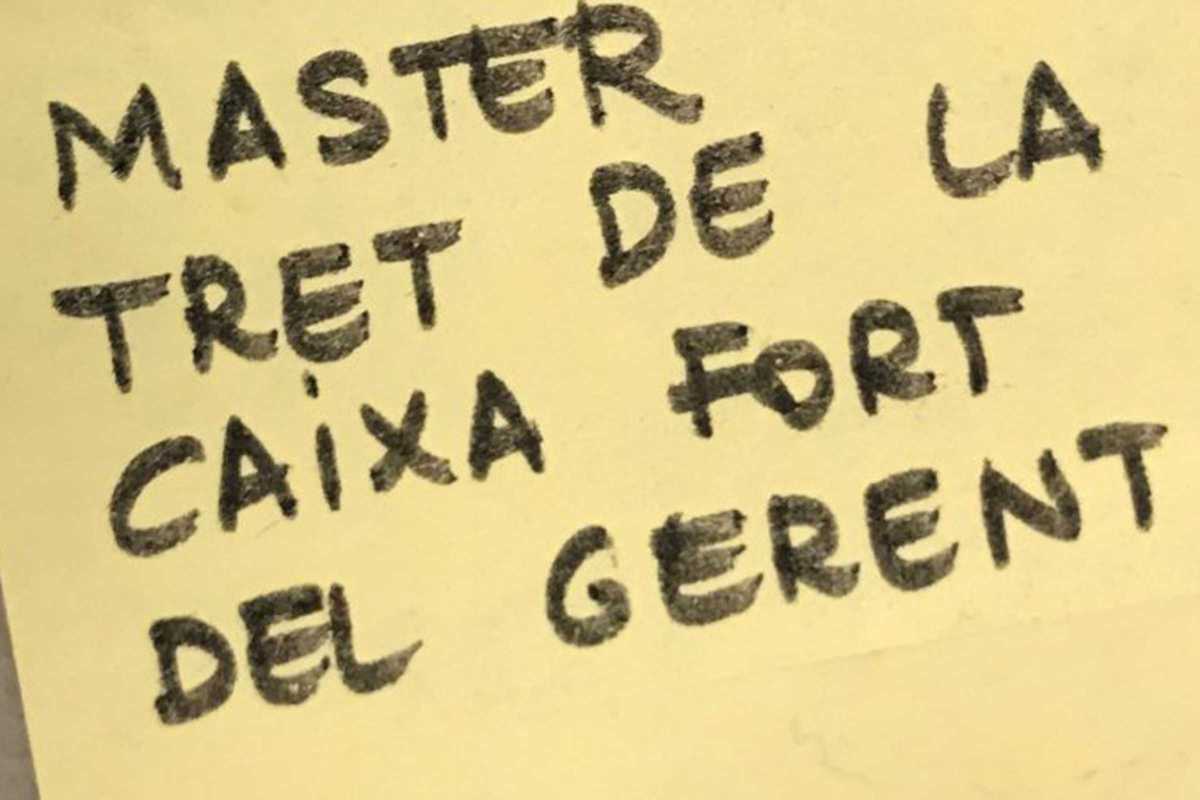 MASTER
TRET DE LA
CAIXA FORT
DEL GERENT